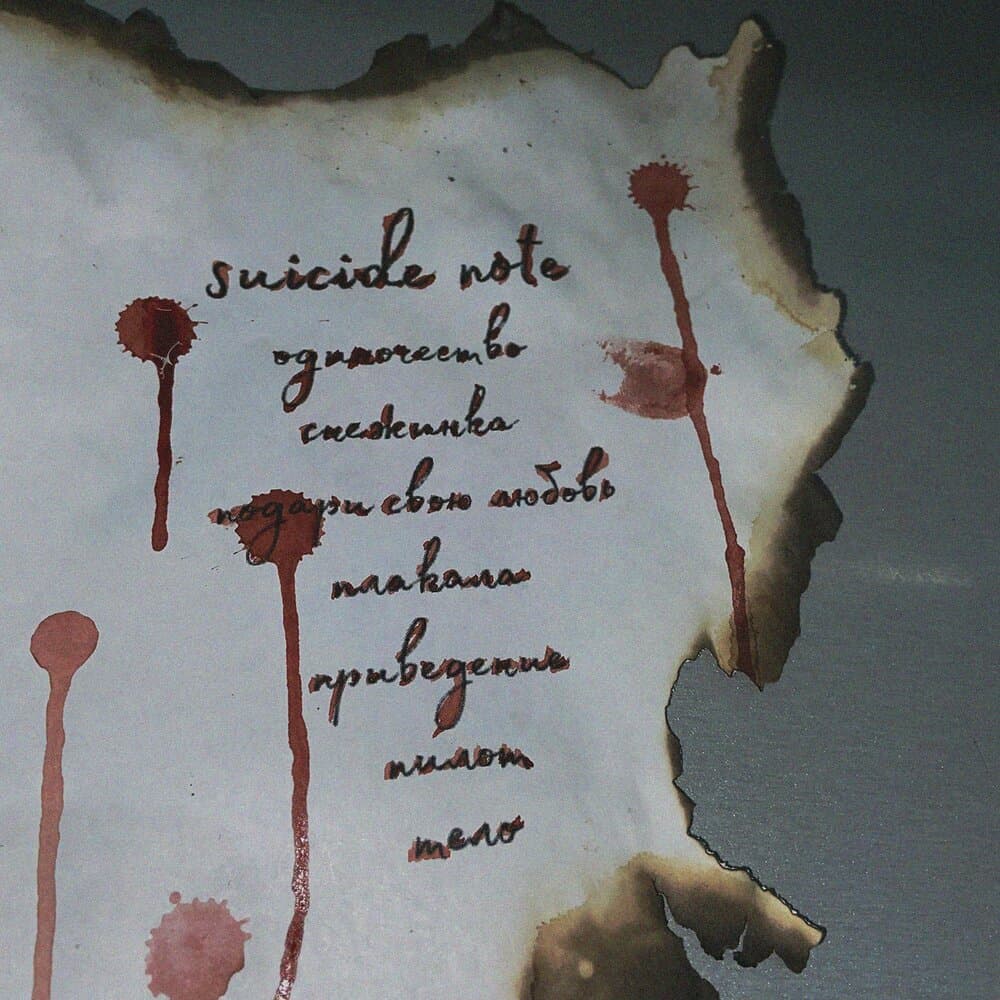 suicide note
одиночество
снежинка
подари свою любовь
плакала
приведение
пилот
тело